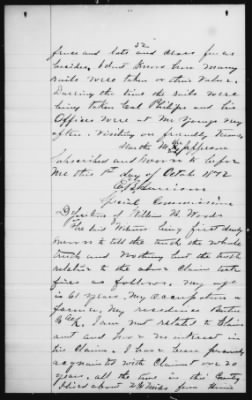 52
fence and lots and cross fences
besides. I dont know how many
rails were taken or their value.
During the time the rails were
being taken Col Philips and his
Officers were at Mr Youngs very
often. Visiting on friendly terms
Martha M Jefferson
Subscribed and sworn to before
me this 1st day of October 1872
Special Commissioner
Deposition of William H. Woods
The said witness being first duly
sworn to tell the truth the whole
truth and nothing but the truth
relative to the above claim testi
fies as follows. My age
is 61 years. My occupation a
farmer, My residence Benton
Co Ark. I am not related to Claim
ant and have no interest in
his Claim, I have been personally
acquainted with Claimant over 20
years. all the time in this County
I lived about 2½ miles from him